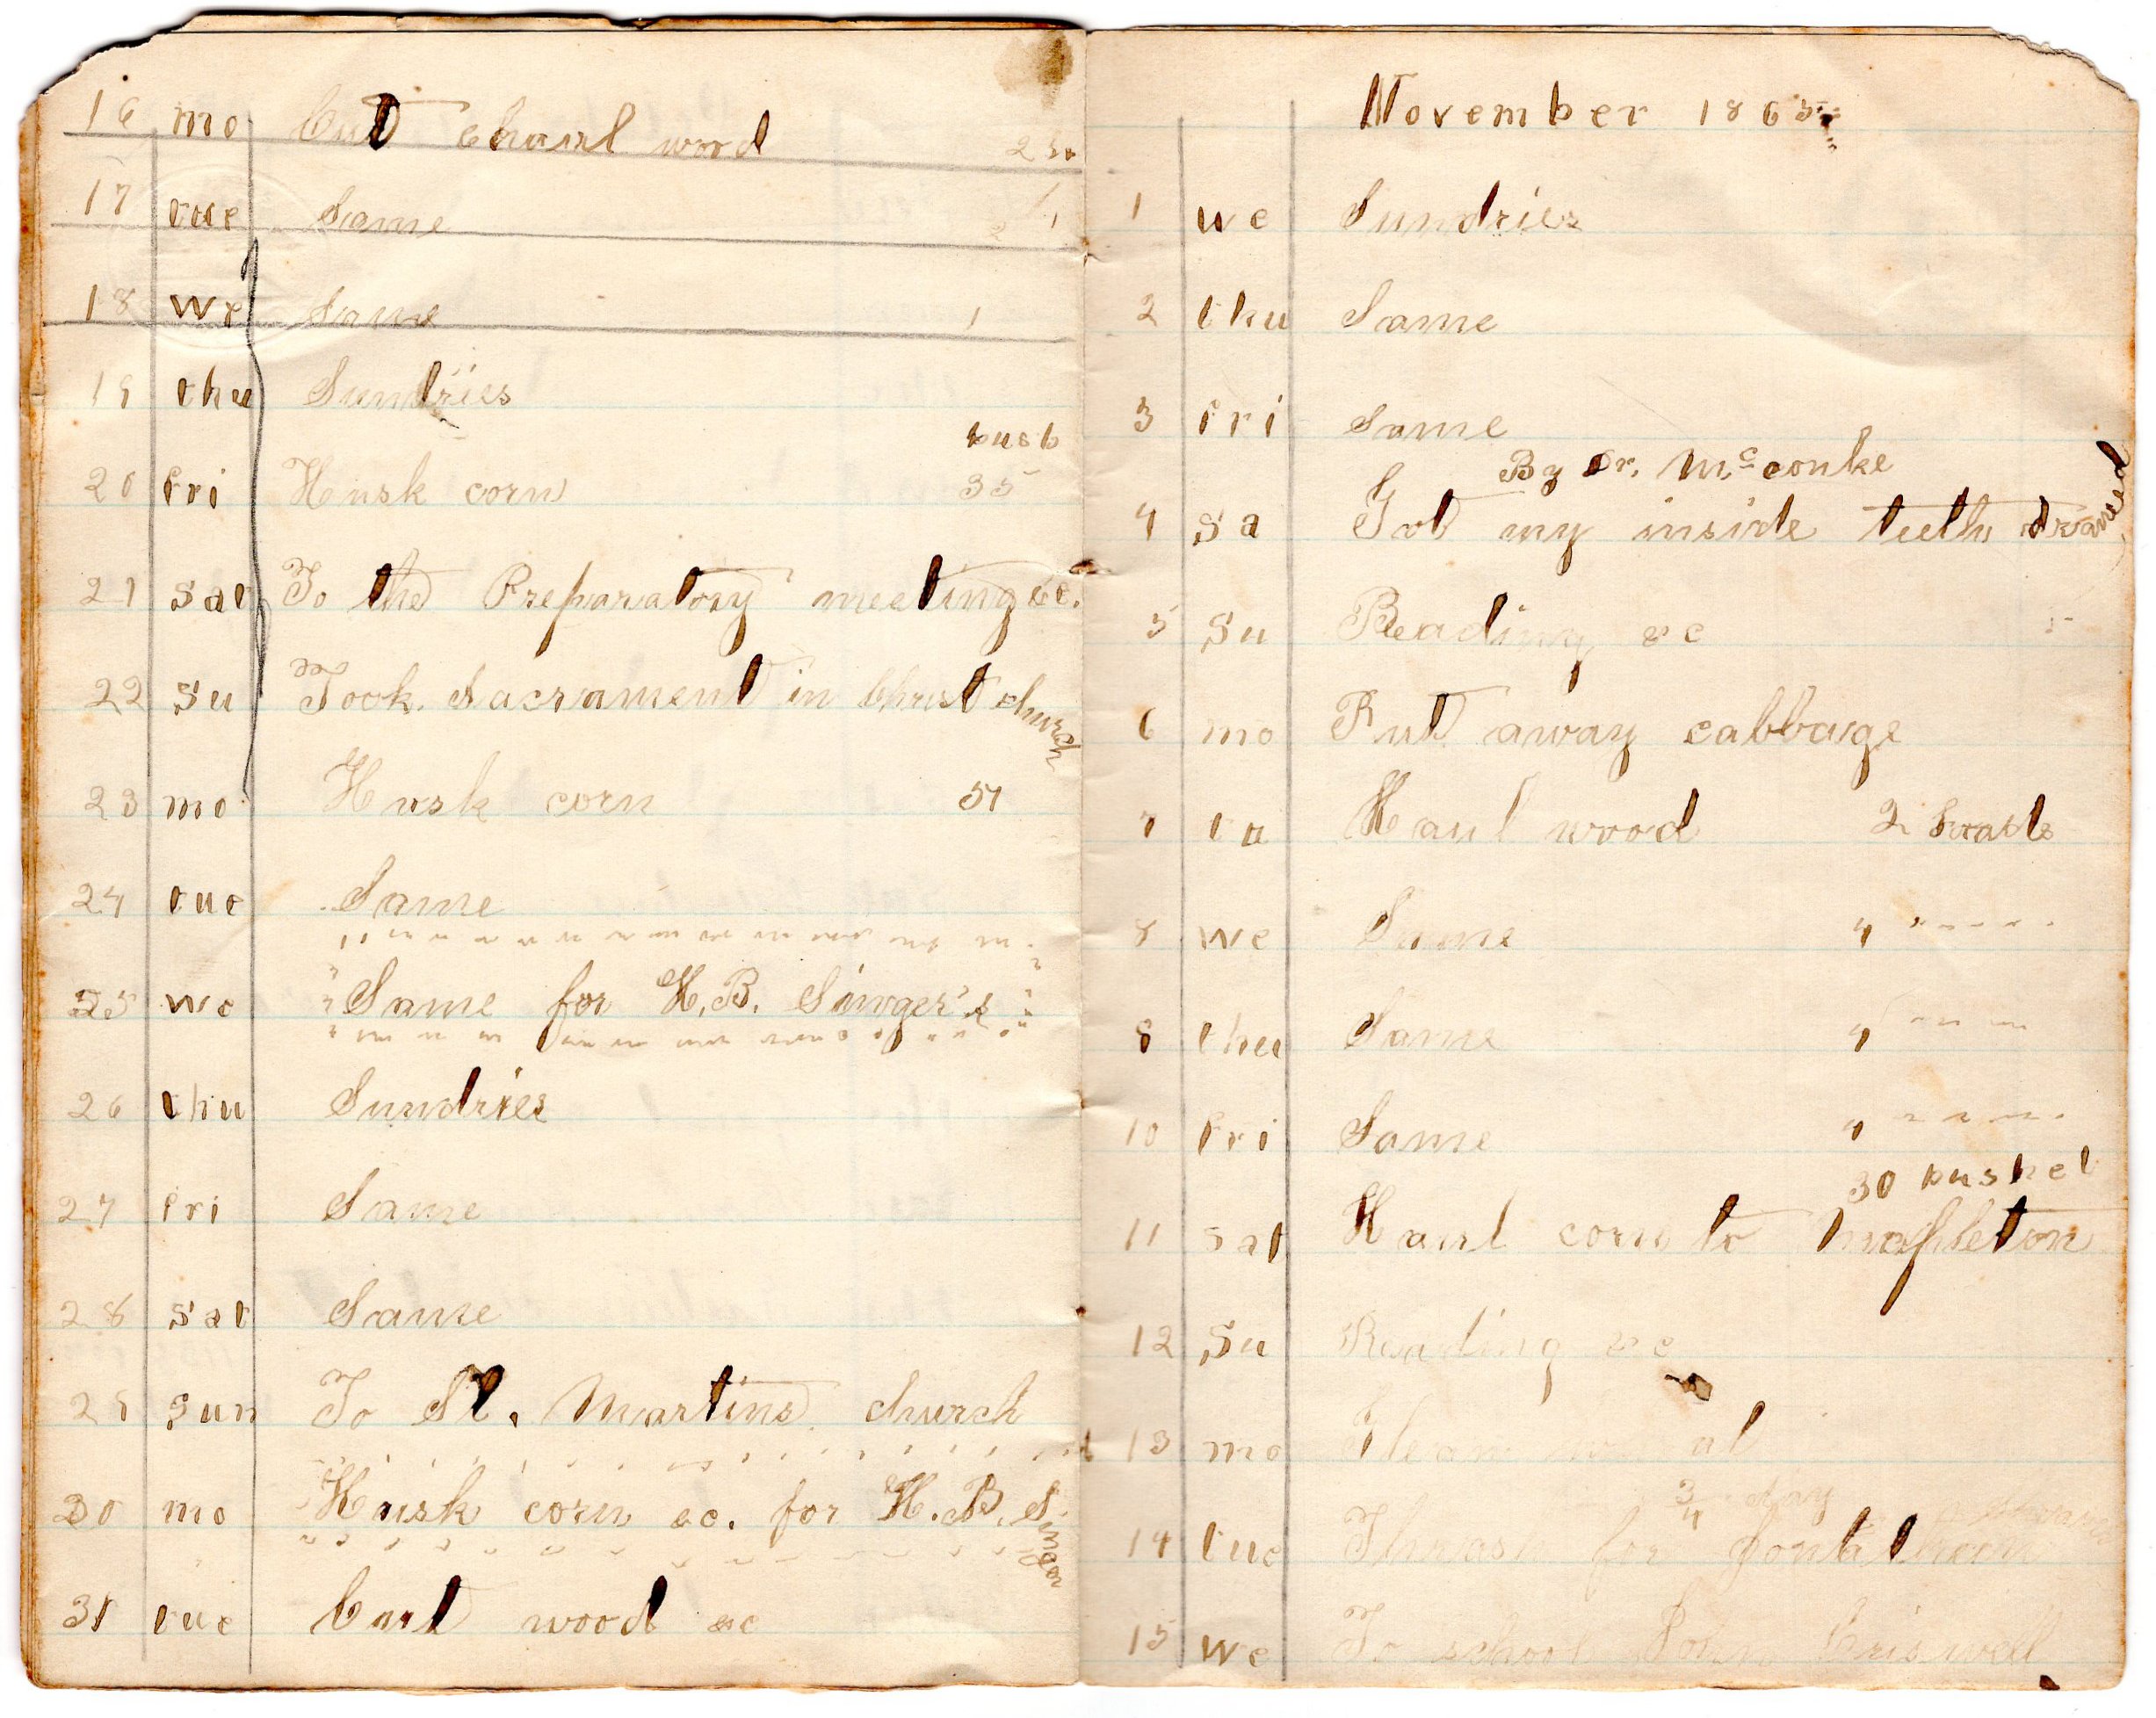 16 mo Cut & haul wood 2
17 tue Same 2
18 we Same 1
19 thu Sundries
bush
20 fri Husk corn 35
21 Sat To the Preparatory meeting &c.
22 Su Took Sacrament in Christ church
23 mo Husk corn 51
24 tue Same
25 we Same for H. B. Singer's
26 thu Sundries
27 fri Same
28 Sat Same
29 Sun To St. Martins church
30 mo Husk corn &c. for H. B. Singer
31 tue Cut wood &c
November 1865
1 we Sundries
2 thu Same
3 fri Same
By Dr. Mcconke
4 Sa Got my inside teeth drawed
5 Su Reading &c
6 mo Put away cabbage
7 tu Haul wood 2
8 we Same 4 " " " "
9 thu Same 4 " " "
10 fri Same 4 " " " "
30 bushel
11 Sat Haul corn to Mapleton
12 Su Reading &c
13 mo
3/4 day
14 tue Thrash for
15 we To school John Criswell